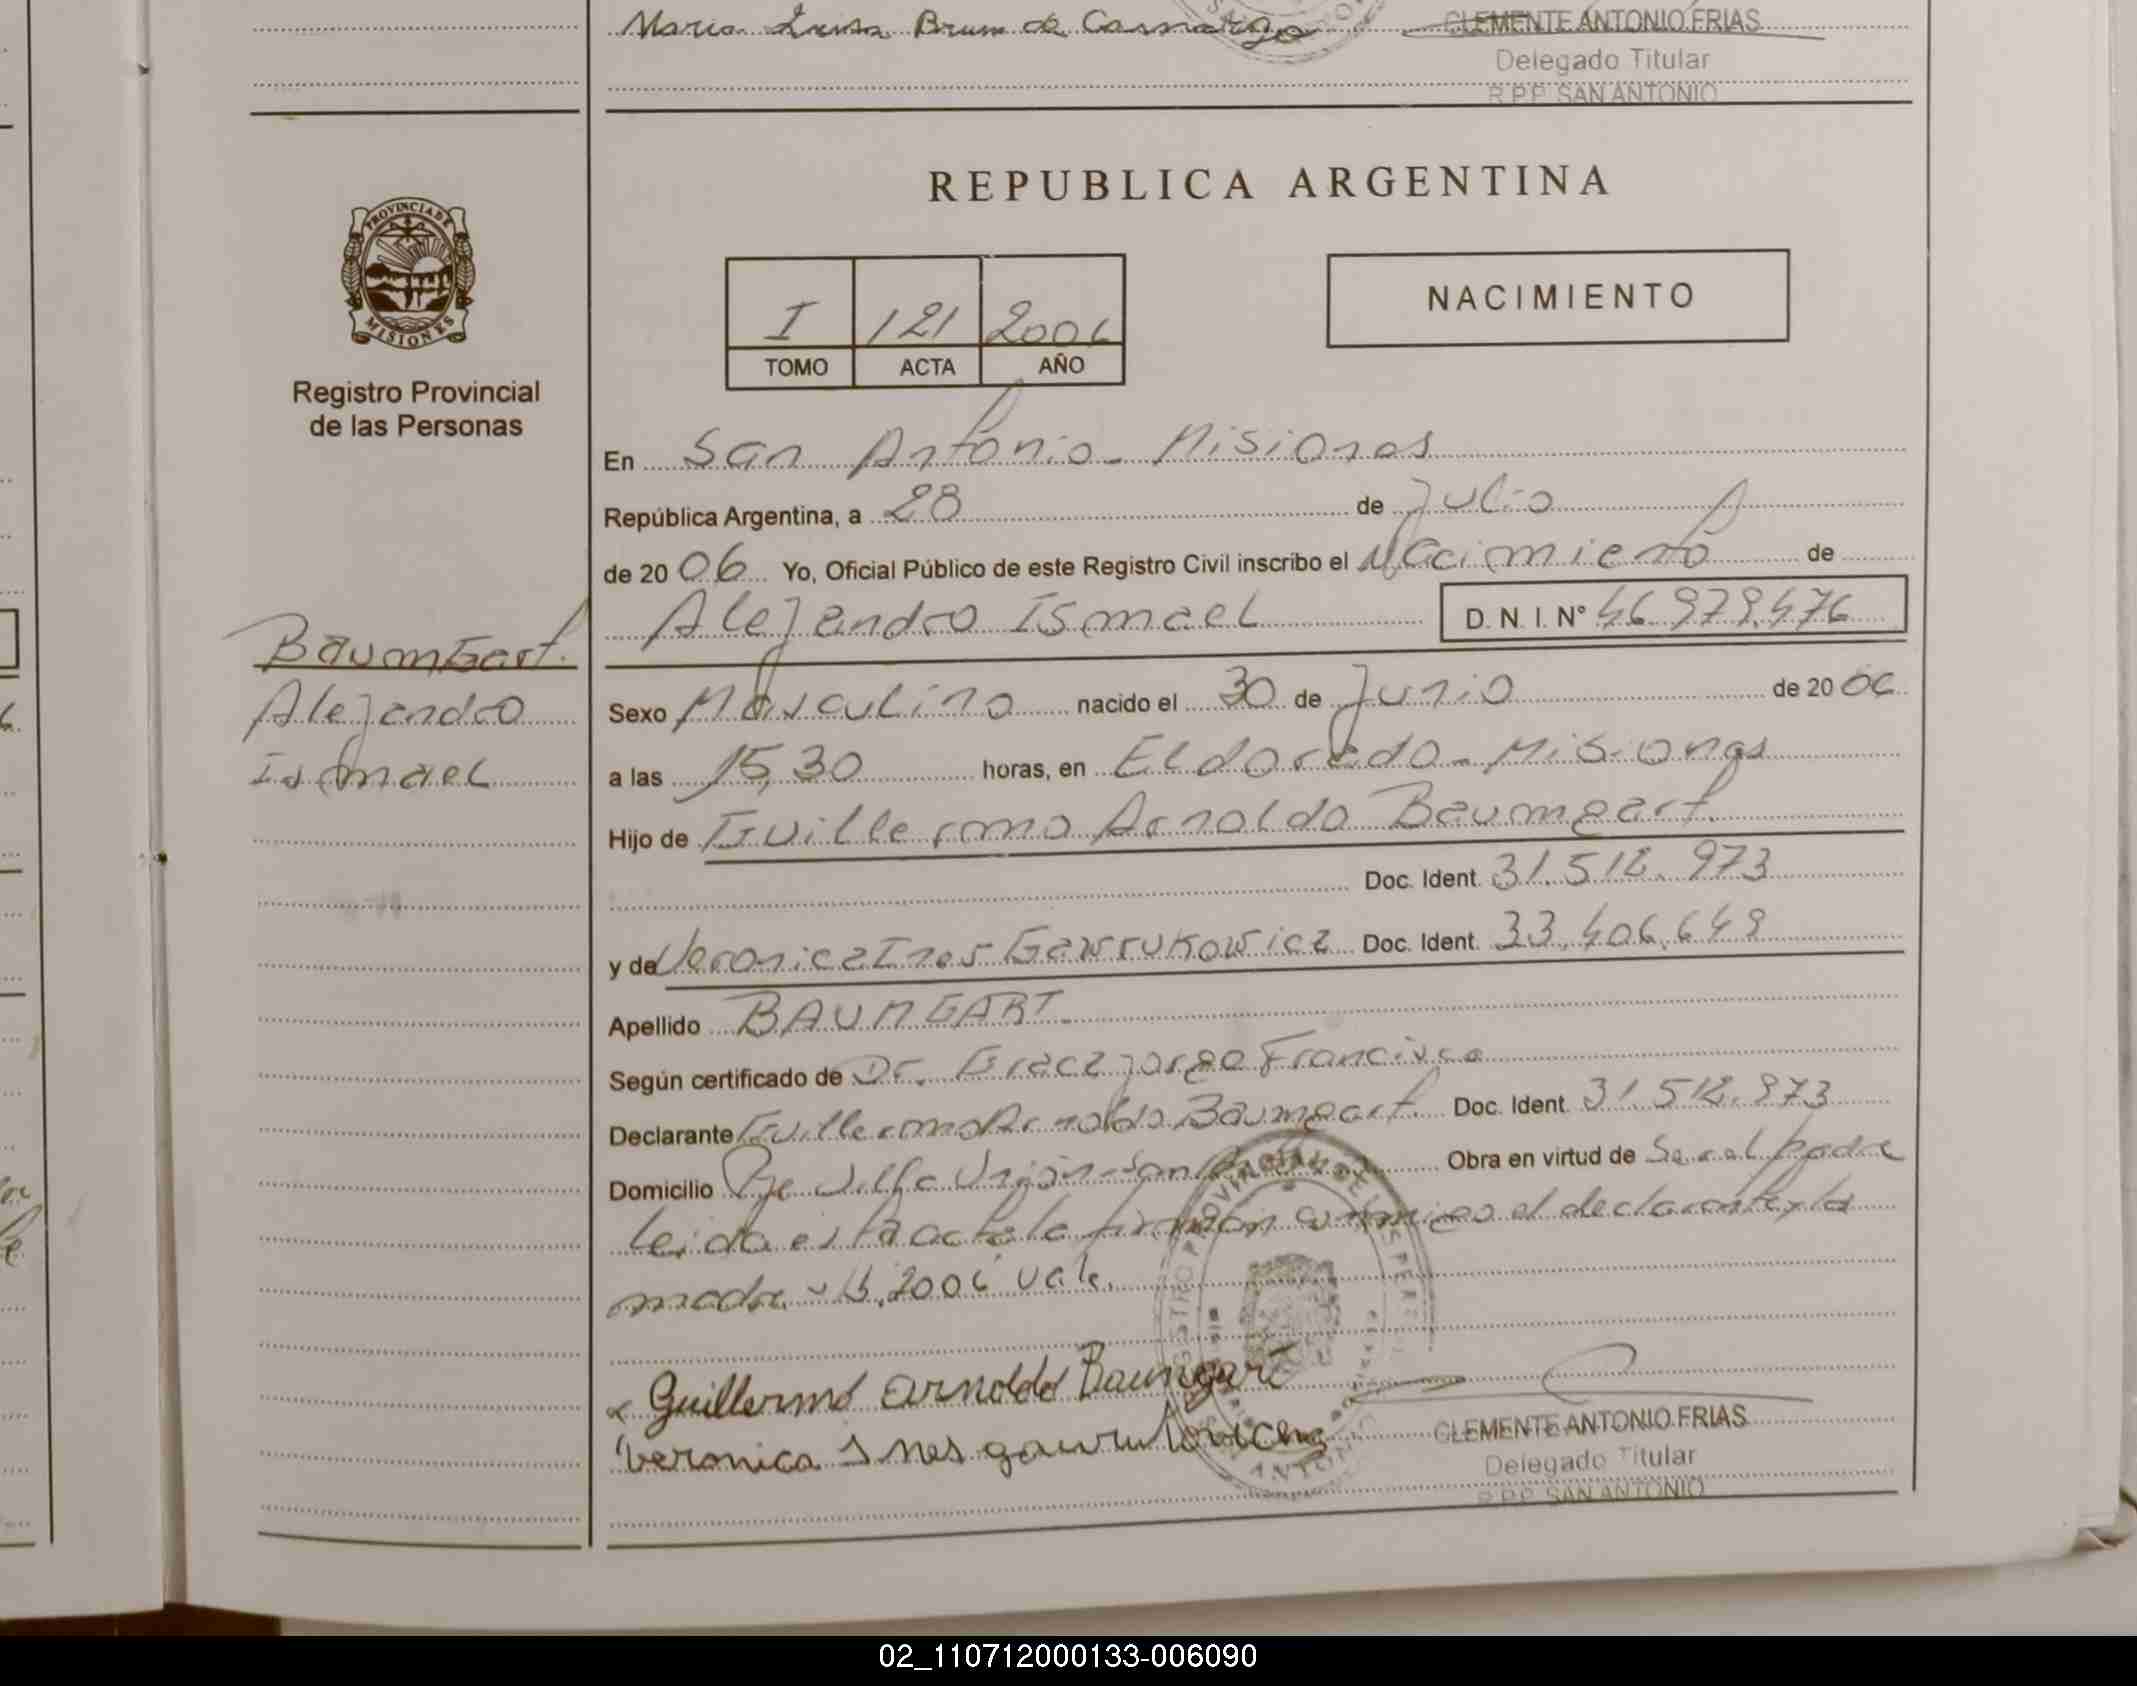 Maria Luisa Brum de Camargo
CLEMENTE ANTONIO FRIAS
Delegado Titular
R.P.P. SAN ANTONIO
PROVINCIA DE
MISIONES
Registro Provincial
de las Personas
Baumgart.
Alejandro
Ismael
REPUBLICA ARGENTINA
I 121 2006
TOMO ACTA AÑO
NACIMIENTO
En San Antonio - Misiones
República Argentina, a 28 de Julio
de 2006 Yo, Oficial Público de este Registro Civil inscribo el Nacimiento de
Alejandro Ismael D. N. I. Nº 46.979.476
Sexo Masculino nacido el 30 de Junio de 2006
a las 15,30 horas, en Eldorado - Misiones
Hijo de Guillermo Arnoldo Baumgart.
Doc. Ident. 31.512.973
y de Veronica Ines Gawrukowicz Doc. Ident. 33.406.649
Apellido BAUMGART.
Según certificado de Dr. Jorge Francisco
Declarante Guillermo Arnoldo Baumgart. Doc. Ident. 31.512.973
Domicilio Pje Villa Union - San Obra en virtud de Ser el padre
Leida esta acta la firman conmigo el declarante y la
madre - 2006 vale.
Guillermo Arnoldo Baumgart
Veronica Ines
CLEMENTE ANTONIO FRIAS
Delegado Titular
R.P.P. SAN ANTONIO
02_110712000133-006090